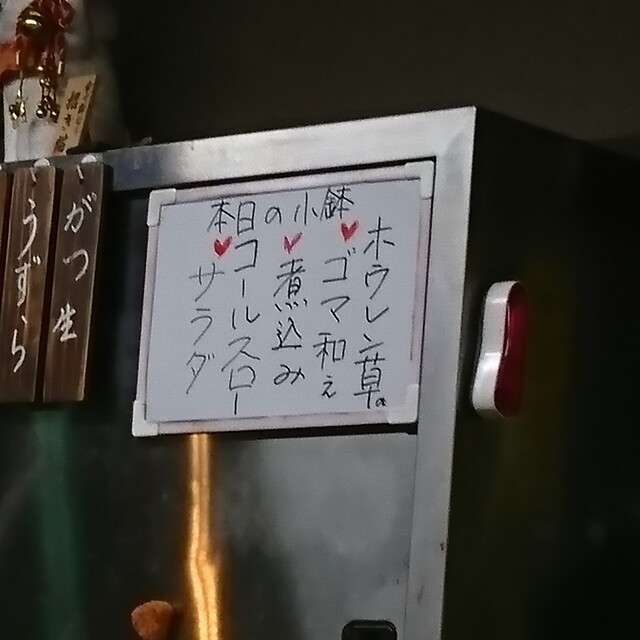 本日の小鉢
ホウレン草の
ゴマ和え
煮込み
コールスロー
サラダ
がつ生
うずら